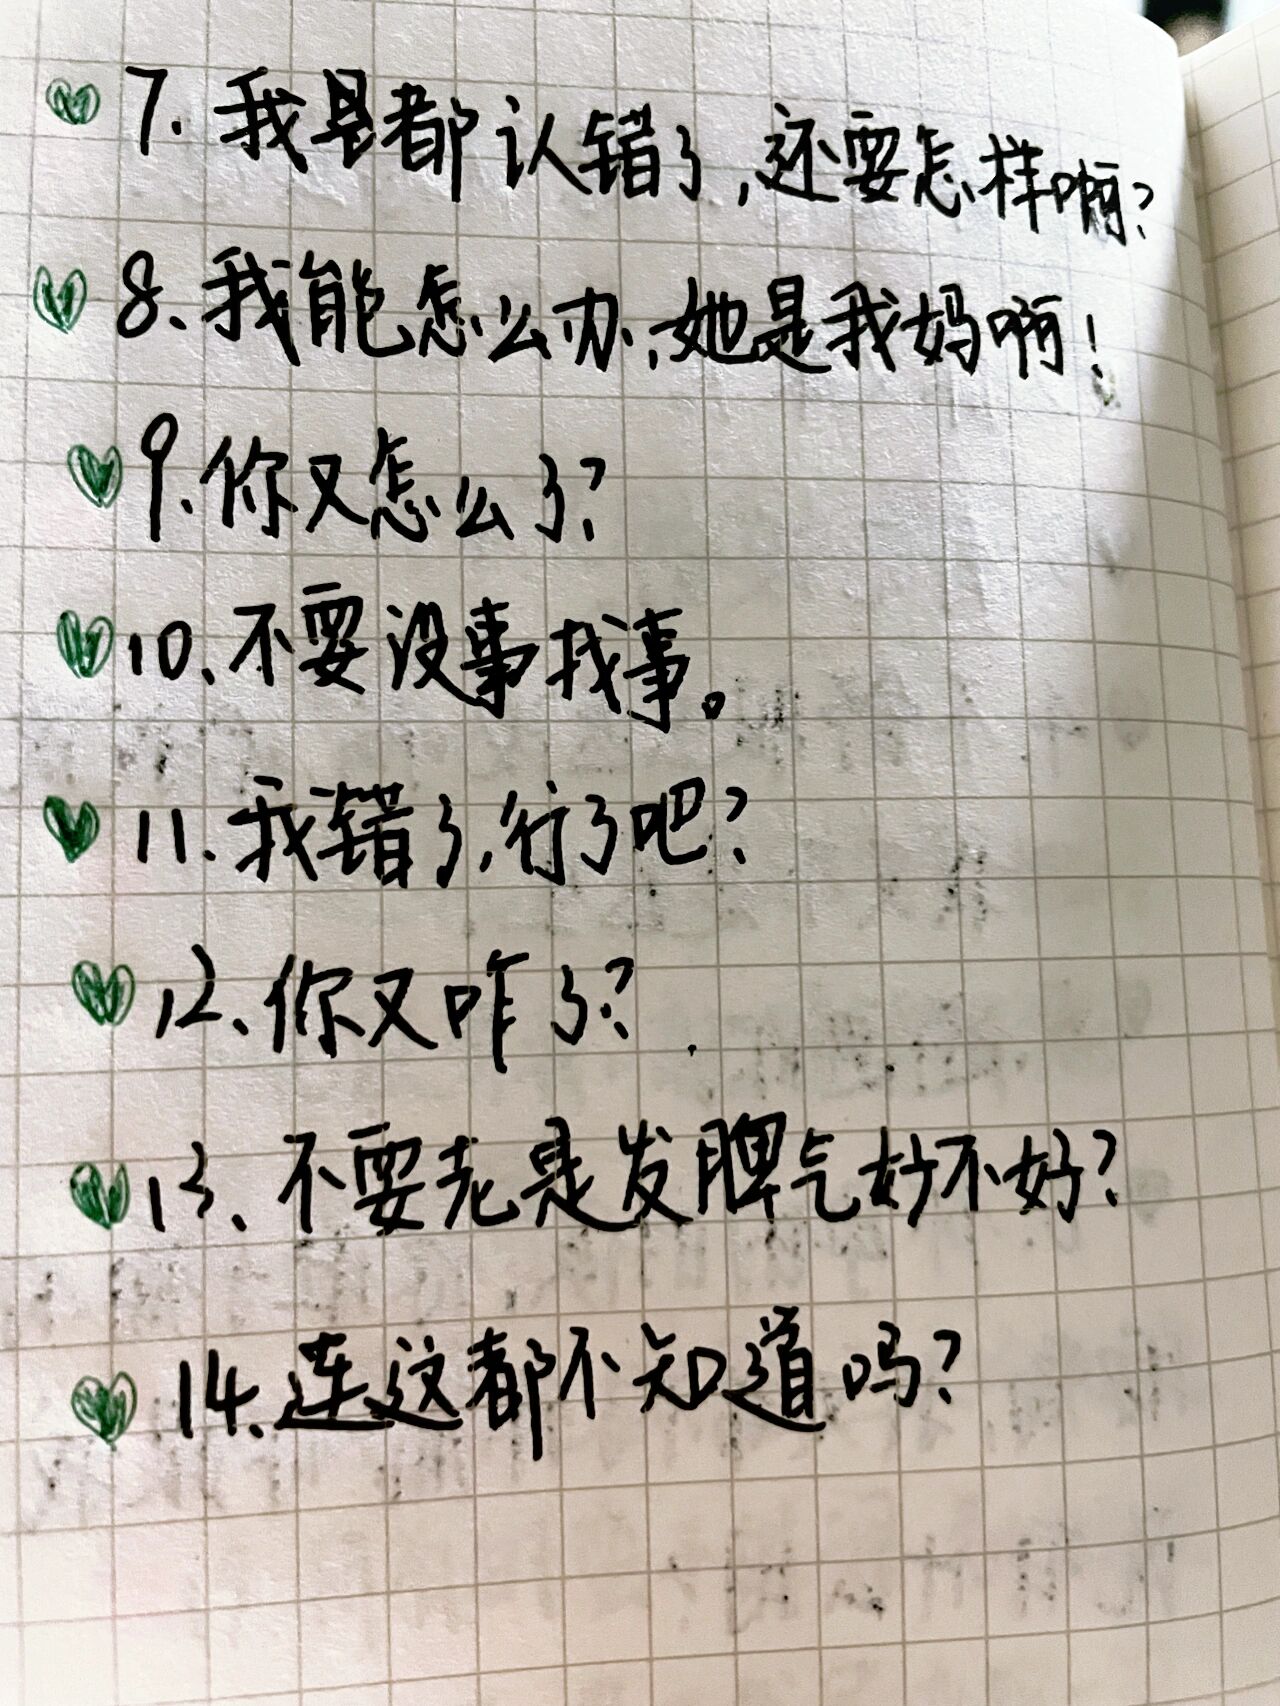 7. 我是都认错了,还要怎样啊?
8、我能怎么办,她是我妈啊!
9、你又怎么了?
10、不要没事找事。
11、我错了,行了吧?
12、你又咋了?
13、不要老是发脾气好不好?
14、连这都不知道吗?